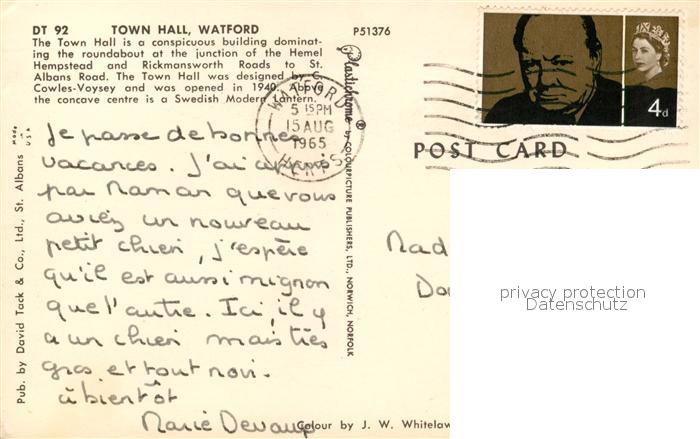 DT 92 TOWN HALL, WATFORD P51376
The Town Hall is a conspicuous building dominat-
ing the roundabout at the junction of the Hemel
Hempstead and Rickmansworth Roads to St.
Albans Road. The Town Hall was designed by C.
Cowles-Voysey and was opened in 1940. Above
the concave centre is a Swedish Modern Lantern.
Je passe de bonnes
vacances. J'ai appris
par Maman que vous
aviez un nouveau
petit chien, j'espère
qu'il est aussi mignon
que l'autre. Ici, il y
a un chien mais très
gros et tout noir.
à bientôt
Marie Devaux
Pub. by David Tack & Co., Ltd., St. Albans
Made
USA
Plastichrome ® by COLOURPICTURE PUBLISHERS, LTD., NORWICH, NORFOLK
WATFORD
5 15 PM
15 AUG
1965
HERTS
4d
POST CARD
Mad
privacy protection
Datenschutz
Colour by J. W. Whitelaw